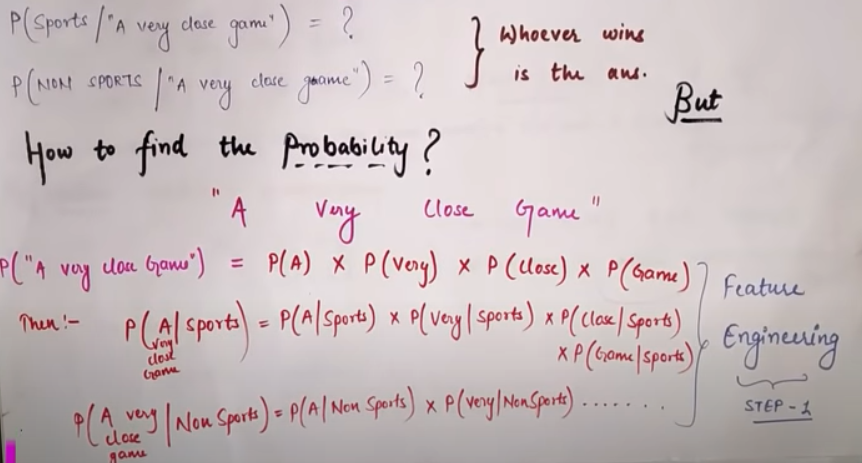 P(Sports / "A very close game") = ?
P(NON SPORTS / "A very close game") = ?
} Whoever wins
is the ans.
But
How to find the Probability?
"A Very Close Game"
P("A very close Game") = P(A) × P(Very) × P(Close) × P(Game)
Then:- P(A very close Game | Sports) = P(A|Sports) × P(Very|Sports) × P(Close/Sports)
× P(Game|Sports)
P(A very close game | Non Sports) = P(A/Non Sports) × P(Very/NonSports) .......
Feature
Engineering
STEP-1